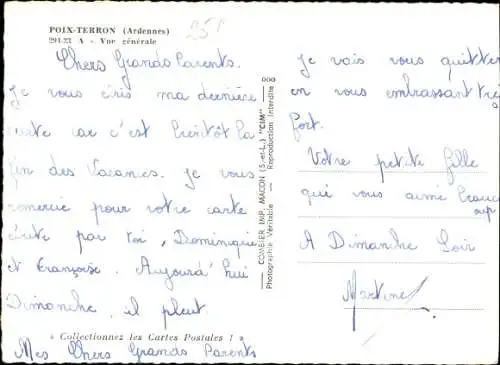 POIX-TERRON (Ardennes)
291-23 A - Vue générale
Chers Grands Parents.
Je vous écris ma dernière
carte car c'est bientôt la
fin des Vacances. Je vous
remercie pour votre carte
écrite par toi, Dominique
et Françoise. Aujourd'hui
Dimanche, il pleut.
« Collectionnez les Cartes Postales ! »
Mes Chers Grands Parents
COMBIER IMP. MACON (S.-et-L.) "CIM"
Photographie Véritable - Reproduction Interdite
Je vais vous quitter
en vous embrassant très
fort.
Votre petite fille
qui vous aime beau
coup
A Dimanche Soir
Martine